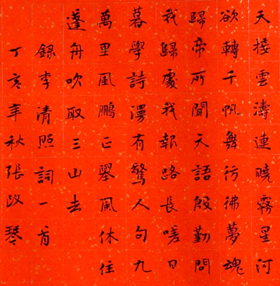 天接雲濤連曉霧星河
欲轉千帆舞彷彿夢魂
歸帝所聞天語殷勤問
我歸處我報路長嗟日
暮學詩謾有驚人句九
萬里風鵬正舉風休住
蓬舟吹取三山去
錄李清照詞一首
丁亥年秋張改琴